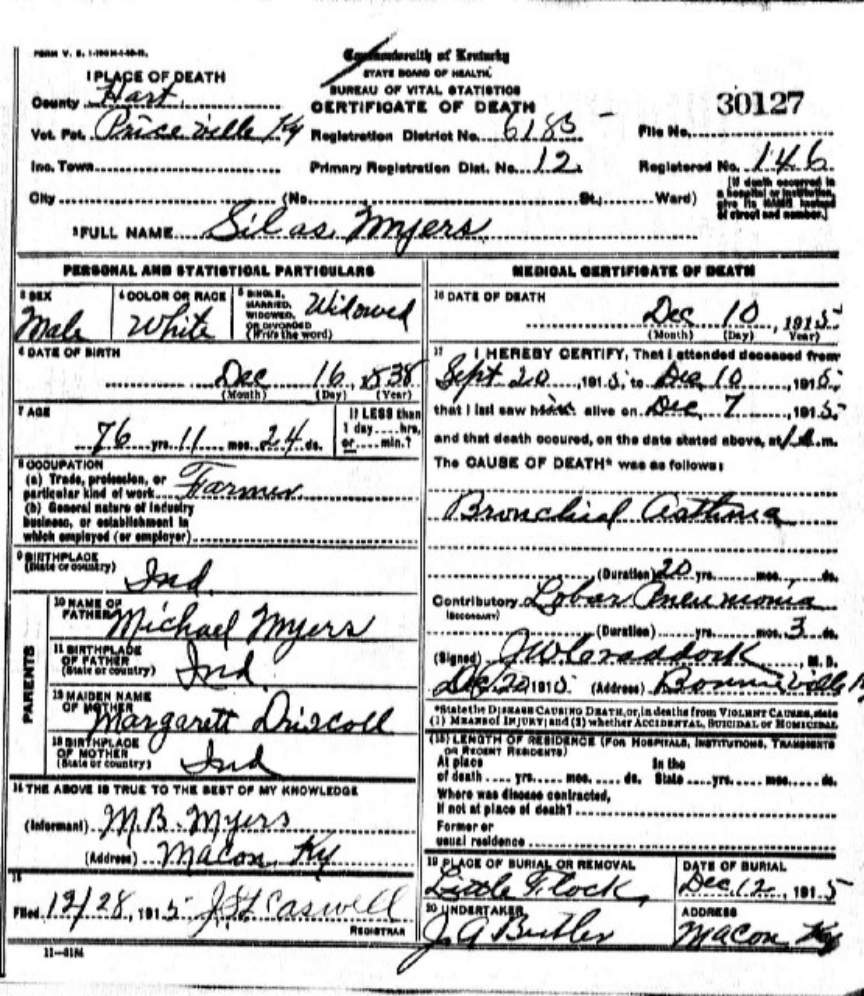 FORM V. S. 1-
Commonwealth of Kentucky
STATE BOARD OF HEALTH
BUREAU OF VITAL STATISTICS
CERTIFICATE OF DEATH
1 PLACE OF DEATH
County Hart
Vot. Pct. Priceville Ky Registration District No. 6185 File No.
30127
Inc. Town Primary Registration Dist. No. 12 Registered No. 146
City (No. St.; Ward) [If death occurred in a hospital or institution, give its NAME instead of street and number.]
2 FULL NAME Silas Myers
PERSONAL AND STATISTICAL PARTICULARS
3 SEX Male 4 COLOR OR RACE White 5 SINGLE, MARRIED, WIDOWED, OR DIVORCED (Write the word) Widowed
6 DATE OF BIRTH
Dec 16, 1838
(Month) (Day) (Year)
7 AGE If LESS than
76 yrs. 11 mos. 24 ds. 1 day....hrs, or....min.?
8 OCCUPATION
(a) Trade, profession, or
particular kind of work Farmer
(b) General nature of industry
business, or establishment in
which employed (or employer)
9 BIRTHPLACE
(State or country) Ind.
PARENTS
10 NAME OF
FATHER Michael Myers
11 BIRTHPLACE
OF FATHER
(State or country) Ind
12 MAIDEN NAME
OF MOTHER Margarett Driscoll
13 BIRTHPLACE
OF MOTHER
(State or country) Ind
14 THE ABOVE IS TRUE TO THE BEST OF MY KNOWLEDGE
(Informant) M.B. Myers
(Address) Macon, Ky
15
Filed 12/28, 1915 Caswell
REGISTRAR
MEDICAL CERTIFICATE OF DEATH
16 DATE OF DEATH
Dec 10, 1915
(Month) (Day) (Year)
17 I HEREBY CERTIFY, That I attended deceased from
Sept 20, 1915, to Dec 10, 1915,
that I last saw him alive on Dec 7, 1915
and that death occured, on the date stated above, at m.
The CAUSE OF DEATH* was as follows:
Bronchial Asthma
(Duration) 20 yrs. mos. ds.
Contributory Lobar Pneumonia
(SECONDARY)
(Duration) yrs. mos. 3 ds.
(Signed) J W Craddock, M. D.
Dec 20 1915 (Address) Bonnieville
*State the DISEASE CAUSING DEATH, or, in deaths from VIOLENT CAUSES, state
(1) MEANS of INJURY; and (2) whether ACCIDENTAL, SUICIDAL or HOMICIDAL
(18) LENGTH OF RESIDENCE (FOR HOSPITALS, INSTITUTIONS, TRANSIENTS
OR RECENT RESIDENTS)
At place In the
of death .... yrs. .... mos. .... ds. State .... yrs. .... mos. .... ds.
Where was disease contracted,
if not at place of death?
Former or
usual residence
19 PLACE OF BURIAL OR REMOVAL DATE OF BURIAL
Little Flock, Dec. 12, 1915
20 UNDERTAKER ADDRESS
J A Butler Macon Ky